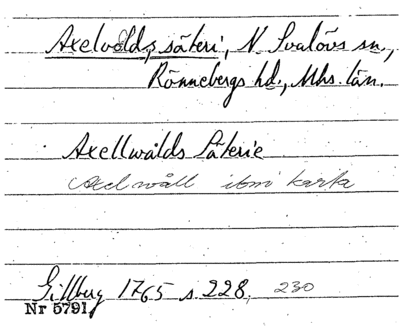 Axelvolds säteri, N. Svalövs sn.,
Rönnebergs hd., Mhs. län.
Axellwålds Säterie
Axelwåll ibm karta
Gillberg 1765 s. 228, 230
Nr 5791